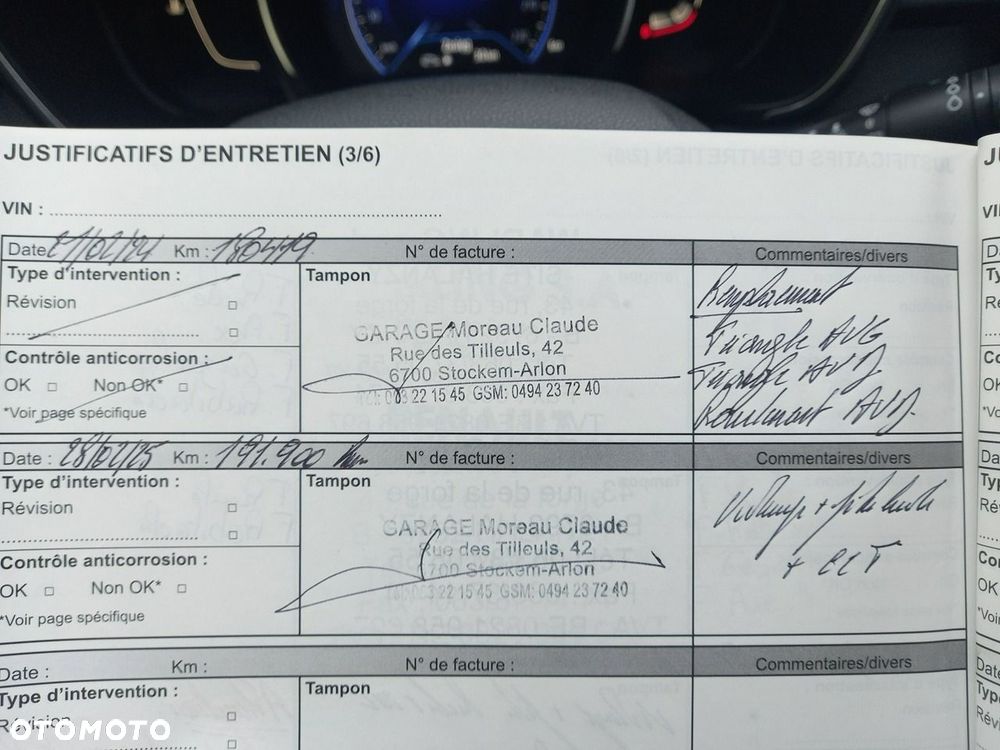 JUSTIFICATIFS D'ENTRETIEN (3/6)
VIN :
Date 21/02/24 Km : 180419 N° de facture : Commentaires/divers
Type d'intervention :
Révision
Tampon
GARAGE Moreau Claude
Rue des Tilleuls, 42
6700 Stockem-Arlon
22 15 45 GSM: 0494 23 72 40
Remplacement
Triangle AVG
Triangle AVD
Roulement AVD
Contrôle anticorrosion :
OK Non OK*
*Voir page spécifique
Date : 28/02/25 Km : 191.900 Km N° de facture : Commentaires/divers
Type d'intervention :
Révision
Tampon
GARAGE Moreau Claude
Rue des Tilleuls, 42
6700 Stockem-Arlon
22 15 45 GSM: 0494 23 72 40
+
+ CCT
Contrôle anticorrosion :
OK Non OK*
*Voir page spécifique
Date : Km : N° de facture : Commentaires/divers
Type d'intervention :
Révision
Tampon
OTOMOTO